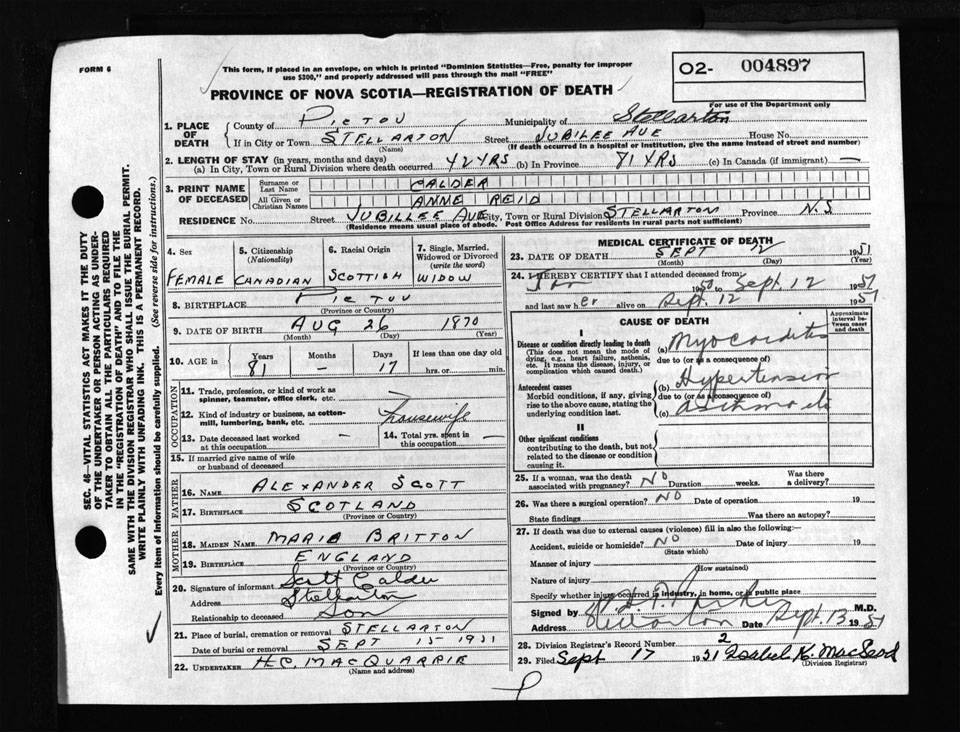 FORM 6
This form, if placed in an envelope, on which is printed "Dominion Statistics—Free, penalty for improper
use $300," and properly addressed will pass through the mail "FREE"
O2- 004897
PROVINCE OF NOVA SCOTIA—REGISTRATION OF DEATH
For use of the Department only
1. PLACE OF DEATH
County of PICTOU Municipality of Stellarton
If in City or Town STELLARTON Street JUBILEE AVE House No.
(Name) (If death occurred in a hospital or institution, give the name instead of street and number)
2. LENGTH OF STAY (in years, months and days)
(a) In City, Town or Rural Division where death occurred 42 YRS (b) In Province 81 YRS (c) In Canada (if immigrant) —
3. PRINT NAME OF DECEASED
Surname or Last Name CALDER
All Given or Christian Names ANNE REID
RESIDENCE No. Street JUBILLEE AVE City, Town or Rural Division STELLARTON Province N.S
(Residence means usual place of abode. Post Office Address for residents in rural parts not sufficient)
4. Sex
FEMALE
5. Citizenship
(Nationality)
CANADIAN
6. Racial Origin
SCOTTISH
7. Single, Married, Widowed or Divorced
(write the word)
WIDOW
8. BIRTHPLACE PICTOU
(Province or Country)
9. DATE OF BIRTH AUG 26 1870
(Month) (Day) (Year)
10. AGE in Years Months Days If less than one day old
81 — 17 hrs. or min.
OCCUPATION
11. Trade, profession, or kind of work as
spinner, teamster, office clerk, etc.
12. Kind of industry or business, as cotton-
mill, lumbering, bank, etc. Housewife
13. Date deceased last worked
at this occupation —
14. Total yrs. spent in
this occupation —
15. If married give name of wife
or husband of deceased
FATHER
16. NAME ALEXANDER SCOTT
17. BIRTHPLACE SCOTLAND
(Province or Country)
MOTHER
18. MAIDEN NAME MARIE BRITTON
19. BIRTHPLACE ENGLAND
(Province or Country)
20. Signature of informant Scott Calder
Address Stellarton
Relationship to deceased Son
21. Place of burial, cremation or removal STELLARTON
Date of burial or removal SEPT 15 - 1951
22. UNDERTAKER H.C. MACQUARRIE
(Name and address)
MEDICAL CERTIFICATE OF DEATH
23. DATE OF DEATH SEPT 12 1951
(Month) (Day) (Year)
24. I HEREBY CERTIFY that I attended deceased from:
1950 to Sept. 12 1951
and last saw her alive on Sept. 12 1951
CAUSE OF DEATH
Approximate interval between onset and death
I
Disease or condition directly leading to death
(This does not mean the mode of
dying, e.g., heart failure, asthenia,
etc. It means the disease, injury, or
complication which caused death.)
(a) Myocarditis
due to (or as a consequence of)
Antecedent causes
Morbid conditions, if any, giving
rise to the above cause, stating the
underlying condition last.
(b) Hypertension
due to (or as a consequence of)
(c)
II
Other significant conditions
contributing to the death, but not
related to the disease or condition
causing it.
25. If a woman, was the death
associated with pregnancy? NO Duration weeks. Was there a delivery?
26. Was there a surgical operation? NO Date of operation 19
State findings Was there an autopsy?
27. If death was due to external causes (violence) fill in also the following:—
Accident, suicide or homicide? NO Date of injury 19
(State which)
Manner of injury
(How sustained)
Nature of injury
Specify whether injury occurred in industry, in home, or in public place
Signed by M.D.
Address Stellarton Date Sept. 13 1951
28. Division Registrar's Record Number 2
29. Filed Sept 17 1951 Isabel K. MacLeod
(Division Registrar)
SEC. 46—VITAL STATISTICS ACT MAKES IT THE DUTY
OF THE UNDERTAKER OR PERSON ACTING AS UNDER-
TAKER TO OBTAIN ALL THE PARTICULARS REQUIRED
IN THE "REGISTRATION OF DEATH" AND TO FILE THE
SAME WITH THE DIVISION REGISTRAR WHO SHALL ISSUE THE BURIAL PERMIT.
WRITE PLAINLY WITH UNFADING INK. THIS IS A PERMANENT RECORD.
Every item of information should be carefully supplied. (See reverse side for instructions.)